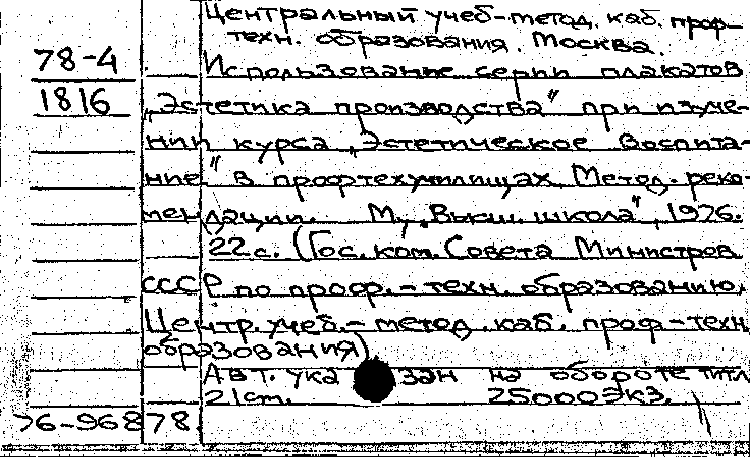 Центральный учеб-метод. каб. проф-
техн. образования. Москва.
78-4 Использование серии плакатов
1816 „Эстетика производства" при изуче-
нии курса „Эстетическое воспита-
ние" в профтехучилищах. Метод. реко-
мендации. М., „Высш. школа", 1976.
22 с. (Гос. ком. Совета Министров
СССР по проф.-техн. образованию.
Центр. учеб.-метод. каб. проф-техн
образования)
Авт. указан на обороте титл
21 cm. 25000 экз.
76-96878